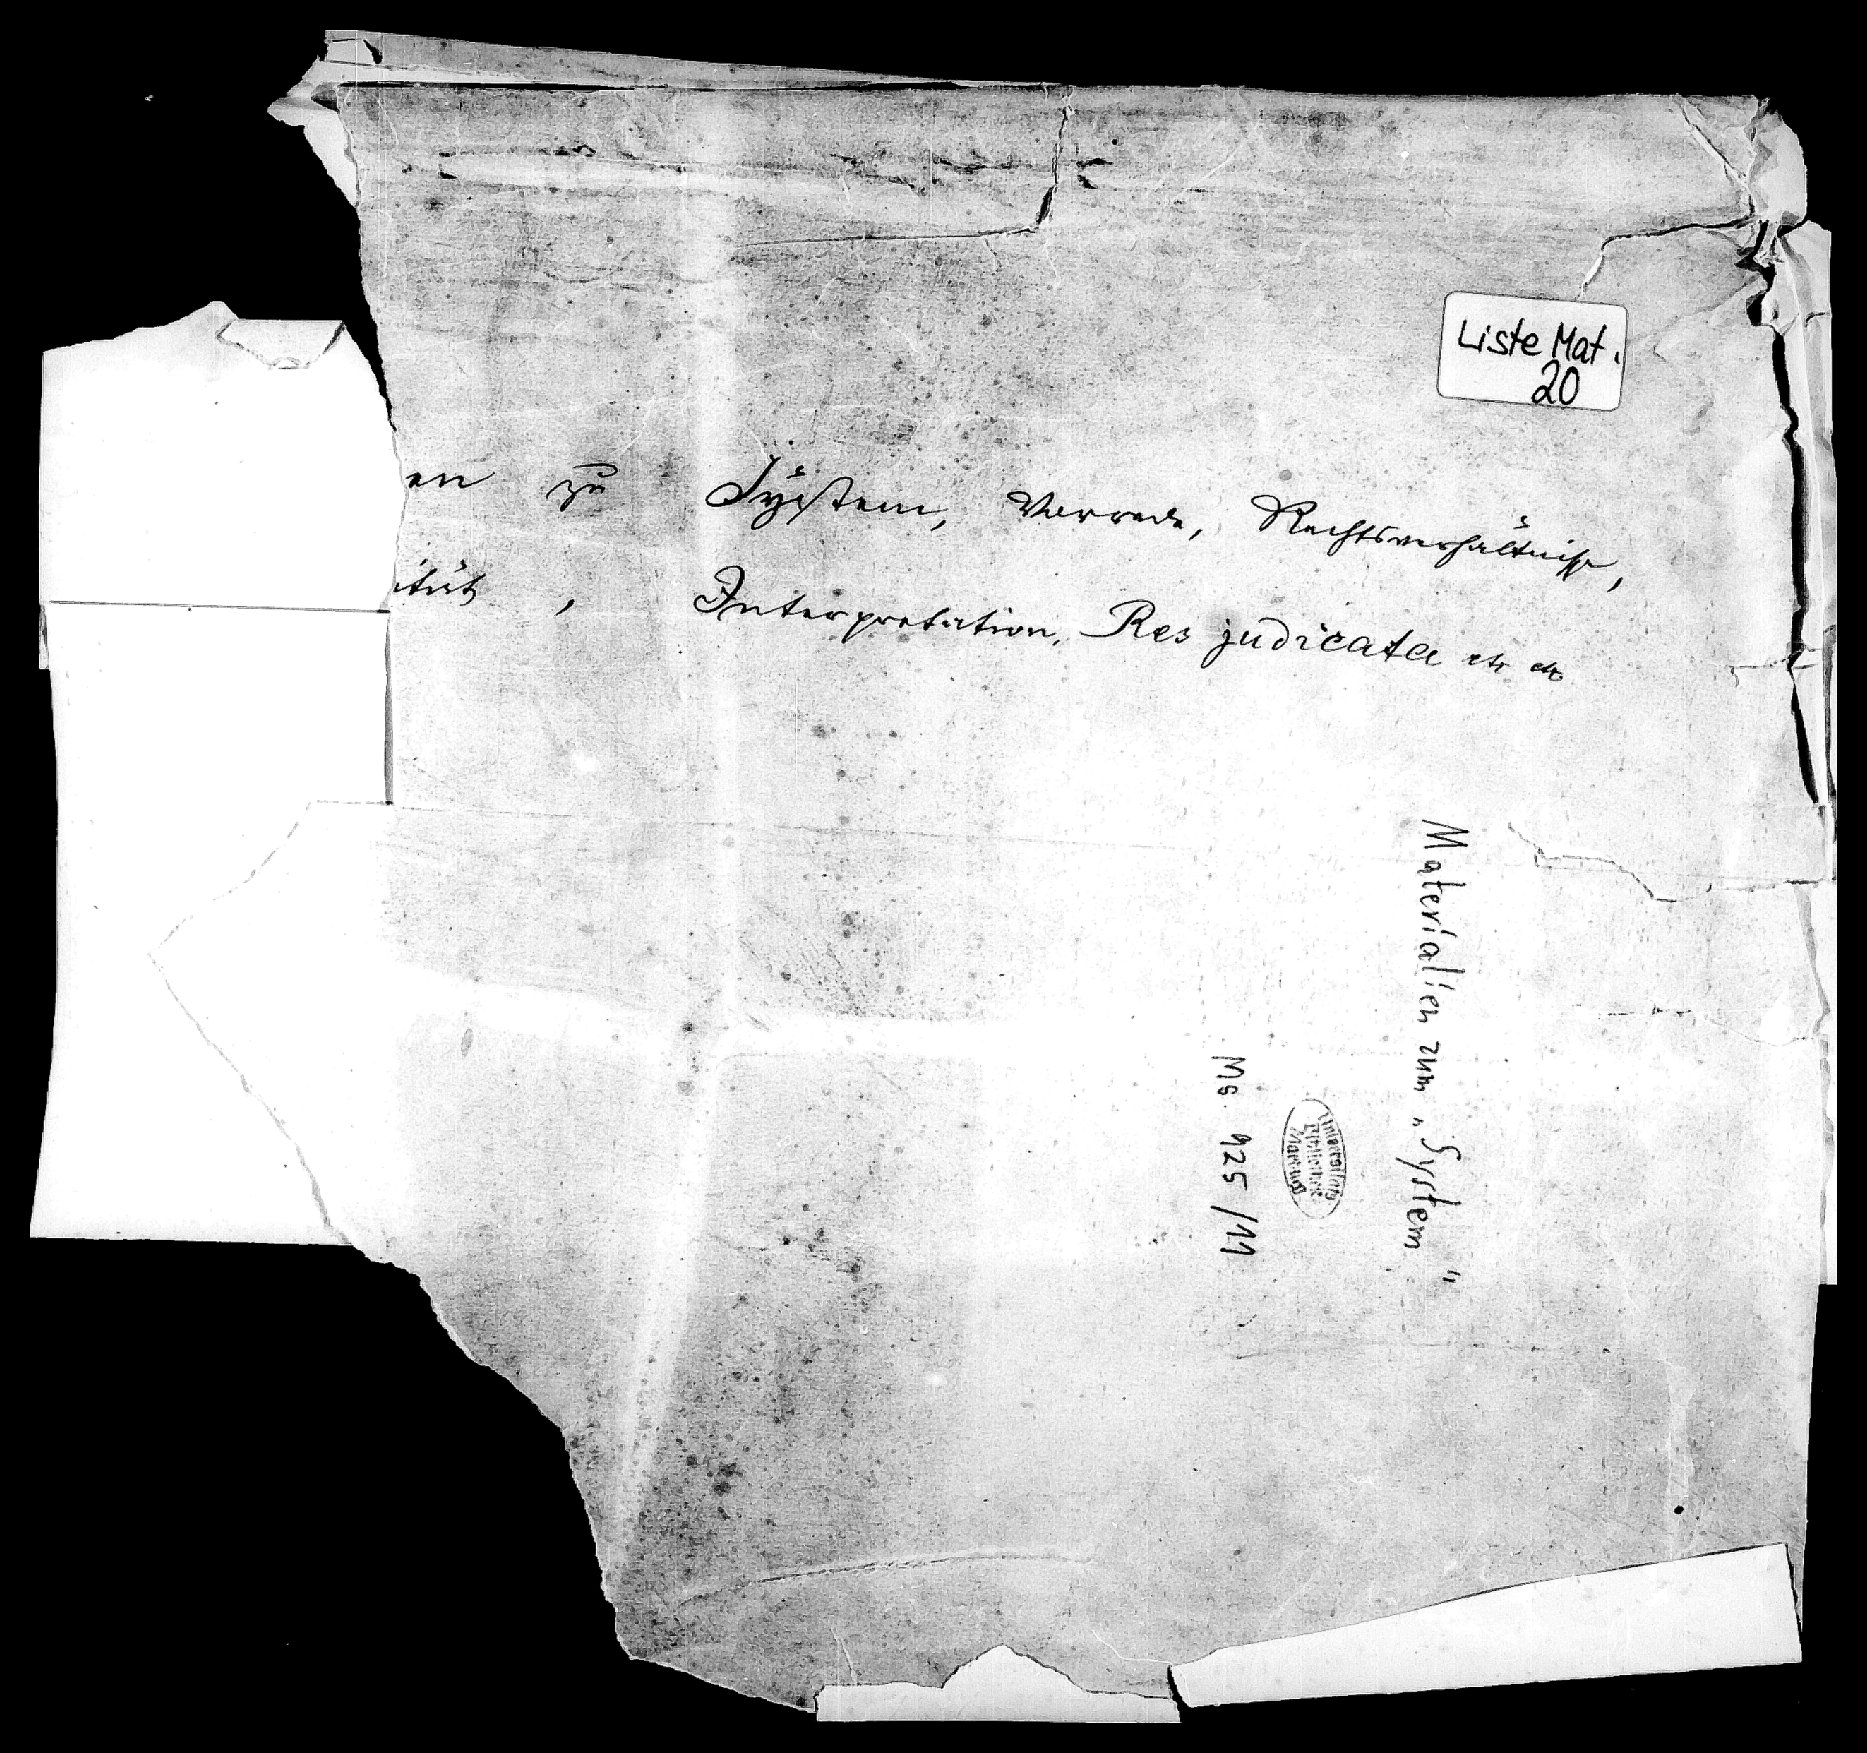 Liste Mat.
20
en zu System, Vorrede, Rechtsverhältnisse,
itut, Interpretation, Res judicata etc etc
Materialien zum „System"
Universitäts
Bibliothek
Marburg
Ms. 925/11